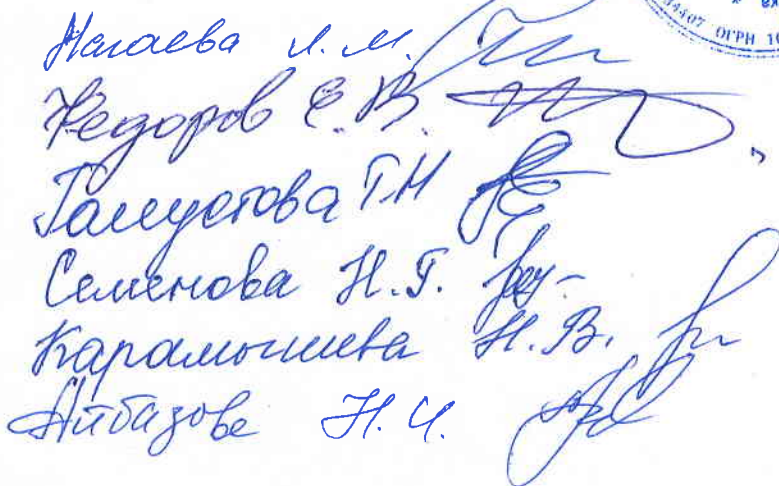 ОГРН
Нагаева И.М.
Федоров С.В.
Т.Н
Семенова Н.Г.
Карамышева Н.В.
Айбазова Н.И.